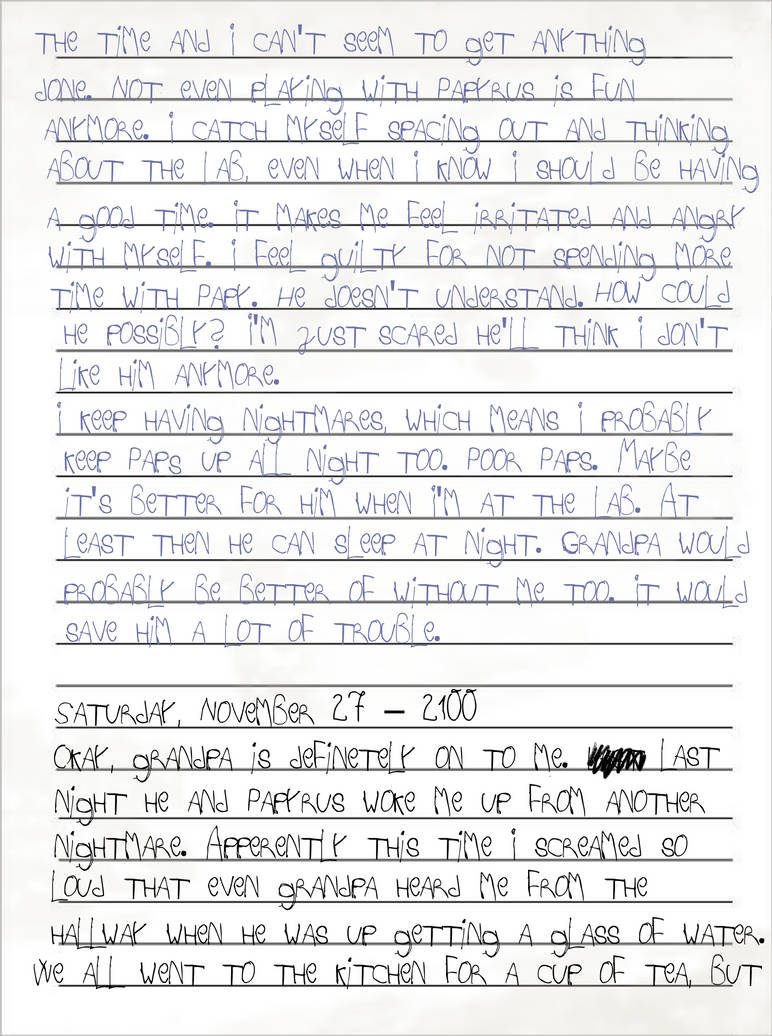 THE TiME AND i CAN'T SEEM TO gET ANYTHiNg
dONE. NOT EVEN PLAYiNg WiTH PAPYRUS iS FUN
ANYMORE. i CATCH MYSELF SPACiNg OUT AND THiNKiNg
ABOUT THE LAB, EVEN WHEN i KNOW i SHOULd BE HAViNg
A gOOd TiME. iT MAKES ME FEEL iRRiTATEd AND ANgRY
WiTH MYSELF. i FEEL gUiLTY FOR NOT SPENdiNg MORE
TiME WiTH PAPY. HE dOESN'T UNdERSTANd. HOW COULd
HE POSSiBLY? i'M JUST SCAREd HE'LL THiNK i dON'T
LiKE HiM ANYMORE.
i KEEP HAViNg NigHTMARES, WHiCH MEANS i PROBABLY
KEEP PAPS UP ALL NigHT TOO. POOR PAPS. MAYBE
iT'S BETTER FOR HiM WHEN i'M AT THE LAB. AT
LEAST THEN HE CAN SLEEP AT NigHT. GRANdPA WOULd
PROBABLY BE BETTER OF WiTHOUT ME TOO. iT WOULd
SAVE HiM A LOT OF TROUBLE.
SATURdAY, NOVEMBER 27 – 2100
OKAY, gRANdPA iS dEFiNETELY ON TO ME. LAST
NigHT HE ANd PAPYRUS WOKE ME UP FROM ANOTHER
NigHTMARE. APPERENTLY THiS TiME i SCREAMEd SO
LOUd THAT EVEN gRANdPA HEARd ME FROM THE
HALLWAY WHEN HE WAS UP gETTiNg A gLASS OF WATER.
WE ALL WENT TO THE KiTCHEN FOR A CUP OF TEA, BUT